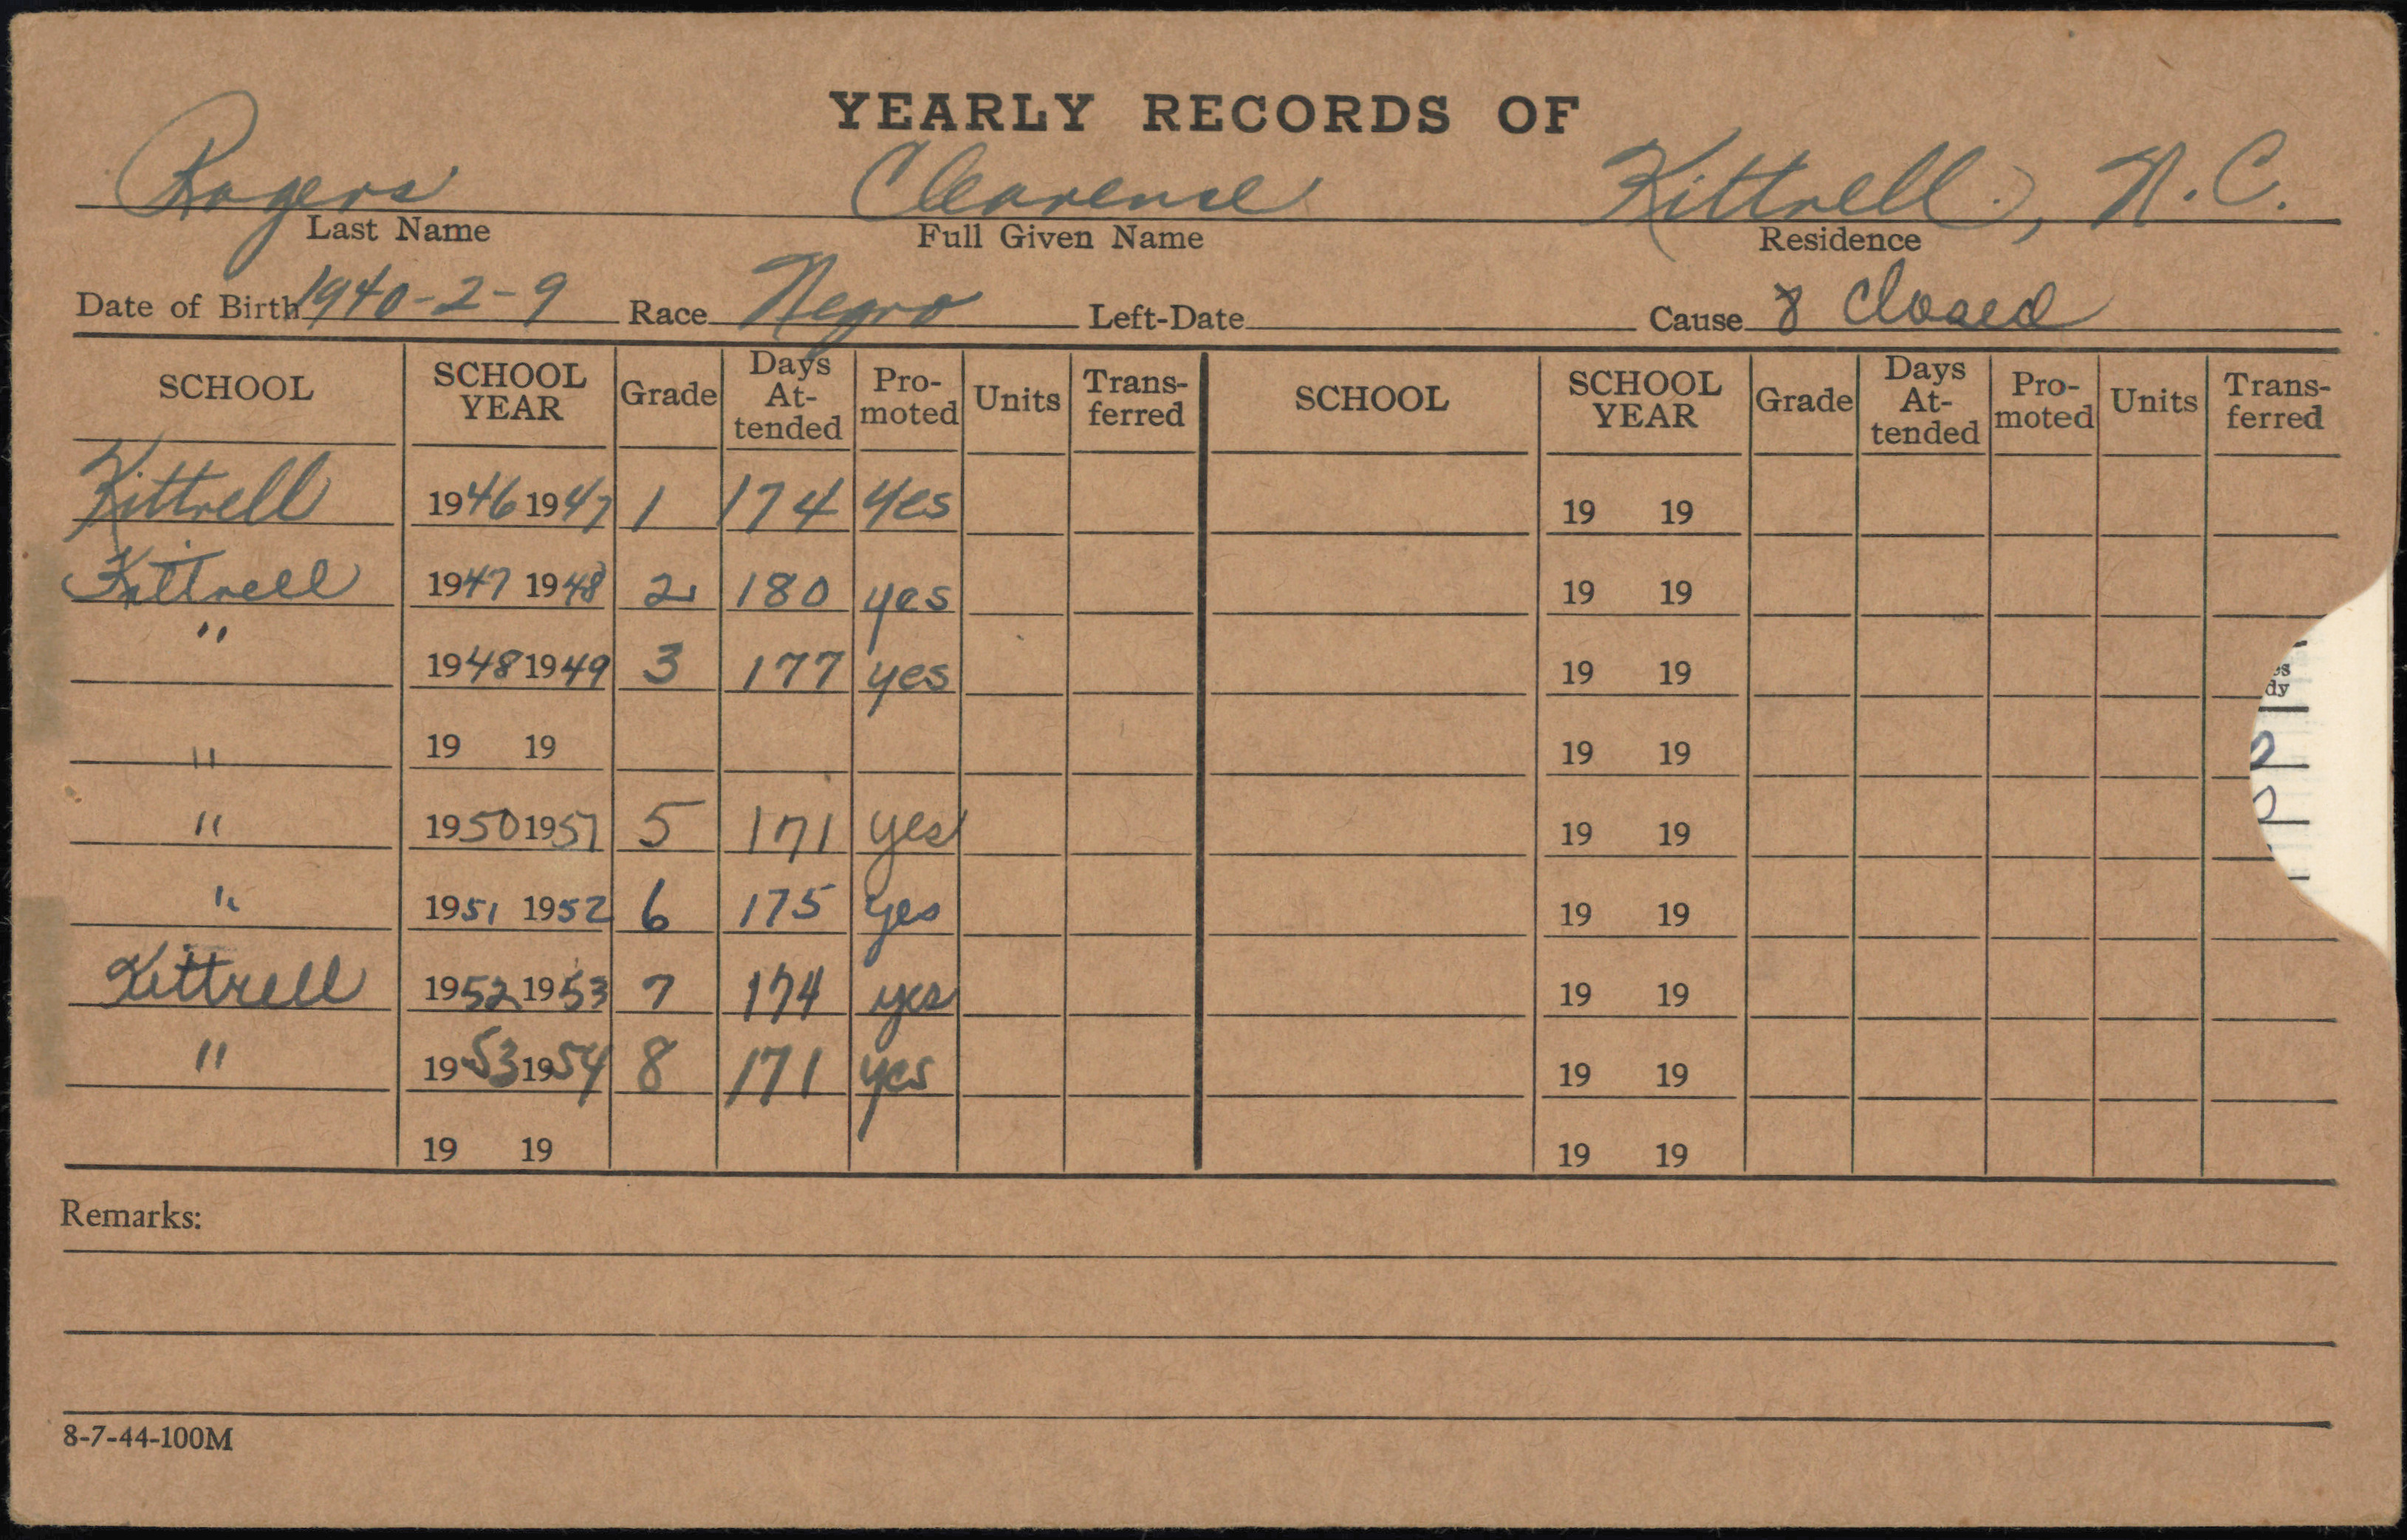 YEARLY RECORDS OF
Rogers Clearence Kittrell, N.C.
Last Name Full Given Name Residence
Date of Birth 1940-2-9 Race Negro Left-Date Cause 8 Closed
SCHOOL SCHOOL YEAR Grade Days At-tended Pro-moted Units Trans-ferred SCHOOL SCHOOL YEAR Grade Days At-tended Pro-moted Units Trans-ferred
Kittrell 1946 1947 1 174 Yes 19 19
Kittrell 1947 1948 2 180 yes 19 19
" 1948 1949 3 177 yes 19 19
" 19 19 19 19
" 1950 1951 5 171 yes 19 19
" 1951 1952 6 175 yes 19 19
Kittrell 1952 1953 7 174 yes 19 19
" 1953 1954 8 171 yes 19 19
19 19 19 19
Remarks:
8-7-44-100M